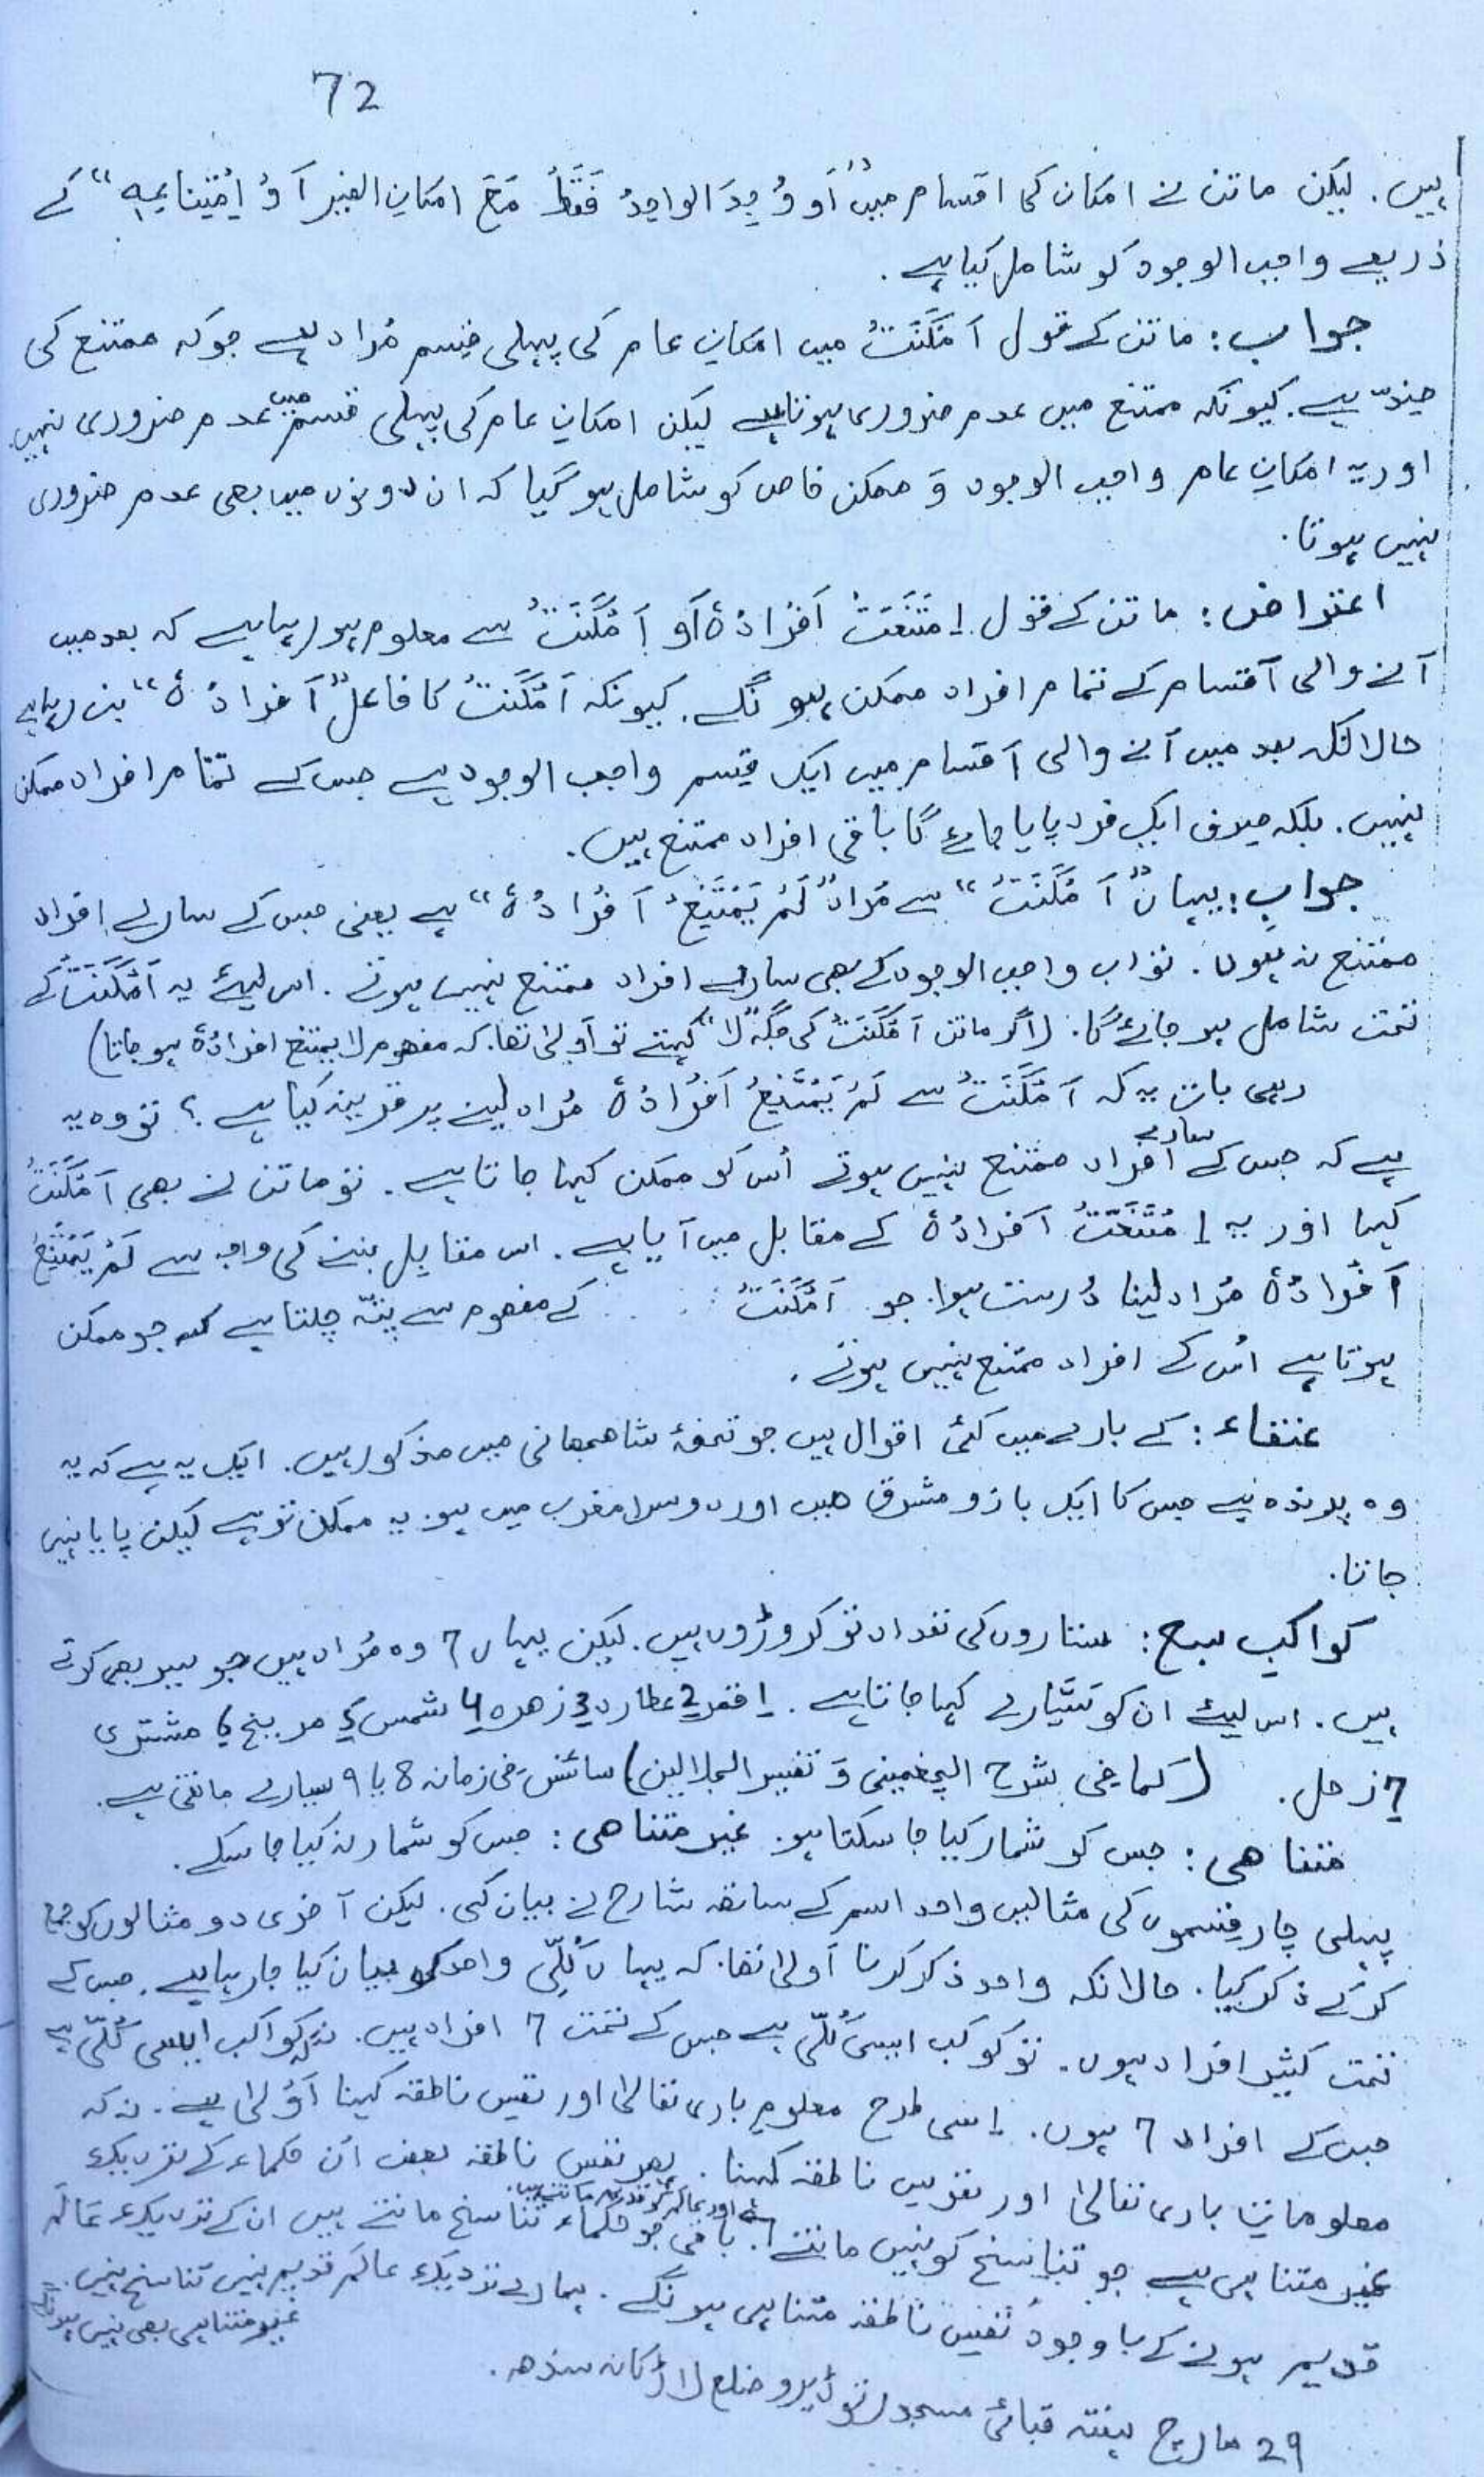 72
ہیں. لیکن ماتن نے امکان کی اقسام میں "اَو وُجِدَ الواحِدُ فَقَطْ مَعَ امکانِ الغیر اَوْ اِمْتِناعِہٖ" کے
ذریعے واجب الوجود کو شامل کیا ہے.
جواب: ماتن کے قول اَمْکَنَتْ میں امکانِ عام کی پہلی قِسم مُراد ہے جو کہ ممتنع کی
ضِدّ ہے. کیونکہ ممتنع میں عدم ضروری ہوتا ہے لیکن امکانِ عام کی پہلی قسم میں عدم ضروری نہیں.
اور یہ امکانِ عام واجب الوجود وَ ممکن خاص کو شامل ہو گیا کہ ان دونوں میں بھی عدم ضروری
نہیں ہوتا.
اعتراض: ماتن کے قول اِمْتَنَعَتْ اَفْرَادُہٗ اَو اَمْکَنَتْ سے معلوم ہو رہا ہے کہ بعد میں
آنے والی اَقسام کے تمام افراد ممکن ہونگے. کیونکہ اَمْکَنَتْ کا فاعل "اَفرادُہٗ" بن رہا ہے
حالانکہ بعد میں آنے والی اَقسام میں ایک قِسم واجب الوجود ہے جس کے تمام افراد ممکن
نہیں. بلکہ صِرف ایک فرد پایا جائے گا باقی افراد ممتنع ہیں.
جواب: یہاں "اَمْکَنَتْ" سے مُراد "لَمْ یَمْتَنِعْ اَفْرادُہٗ" ہے یعنی جس کے سارے افراد
ممتنع نہ ہوں. تو اب واجب الوجود کے بھی سارے افراد ممتنع نہیں ہوتے. اس لیئے یہ اَمْکَنَتْ کے
تحت شامل ہو جائے گا. (اگر ماتن اَمْکَنَتْ کی جگہ "لا" کہتے تو اَولیٰ تھا. کہ مفہوم لا یمتنع افرادُہٗ ہو جاتا)
رہی بات یہ کہ اَمْکَنَتْ سے لَمْ یَمْتَنِعْ اَفْرَادُہٗ مُراد لینے پر قرینہ کیا ہے؟ تو وہ یہ
ہے کہ جس کے سارے افراد ممتنع نہیں ہوتے اُس کو ممکن کہا جاتا ہے. تو ماتن نے بھی اَمْکَنَتْ
کہا اور یہ اِمْتَنَعَتْ اَفرادُہٗ کے مقابل میں آیا ہے. اس مقابِل بننے کی وجہ سے لَمْ یَمْتَنِعْ
اَفْرادُہٗ مُراد لینا دُرست ہوا. جو اَمْکَنَتْ کے مفہوم سے پتہ چلتا ہے کہ جو ممکن
ہوتا ہے اُس کے افراد ممتنع نہیں ہوتے.
عنقاء: کے بارے میں کئی اقوال ہیں جو تحفۂ شاھجھانی میں مذکور ہیں. ایک یہ ہے کہ یہ
وہ پرندہ ہے جس کا ایک بازو مشرق میں اور دوسرا مغرب میں ہو. یہ ممکن تو ہے لیکن پایا نہیں
جاتا.
کواکبِ سبع: ستاروں کی تعداد تو کروڑوں ہیں. لیکن یہاں 7 وہ مُراد ہیں جو سیر بھی کرتے
ہیں. اس لیئے ان کو سَیّارے کہا جاتا ہے. 1 قمر 2 عطارد 3 زھرہ 4 شمس 5 مریخ 6 مشتری
7 زحل. (کما فی شرح الچغمینی وَ تفسیر الجلالین) سائنس فی زمانہ 8 یا 9 سیارے مانتی ہے.
متناھی: جس کو شمار کیا جا سکتا ہو. غیر متناھی: جس کو شمار نہ کیا جا سکے.
پہلی چار قِسموں کی مثالیں واحد اسم کے ساتھ شارح نے بیان کی. لیکن آخری دو مثالوں کو جمع
کر کے ذکر کیا. حالانکہ واحد ذکر کرنا اَولیٰ تھا. کہ یہاں کُلّی واحد کو بیان کیا جا رہا ہے. جس کے
تحت کثیر افراد ہوں. تو کوکب ایسی کُلّی ہے جس کے تحت 7 افراد ہیں. نہ کہ کواکب ایسی کُلّی ہے
جس کے افراد 7 ہوں. اِسی طرح معلومِ باری تعالیٰ اور نفسِ ناطقہ کہنا اَوْلیٰ ہے. نہ کہ
معلوماتِ باری تعالیٰ اور نفوسِ ناطقہ کہنا. پھر نفسِ ناطقہ بعض اُن حکماء کے نزدیک
غیر متناہی ہے جو تناسخ کو نہیں مانتے اور عالم کو قدیم مانتے ہیں. باقی جو حکماء تناسخ مانتے ہیں ان کے نزدیک عالَم
قدیم ہونے کے باوجود نفسِ ناطقہ متناہی ہونگے. ہمارے نزدیک عالَم قدیم نہیں تناسخ نہیں.
غیر متناہی بھی نہیں
29 مارچ ہفتہ قبائی مسجد نوڈیرو ضلع لاڑکانہ سندھ.